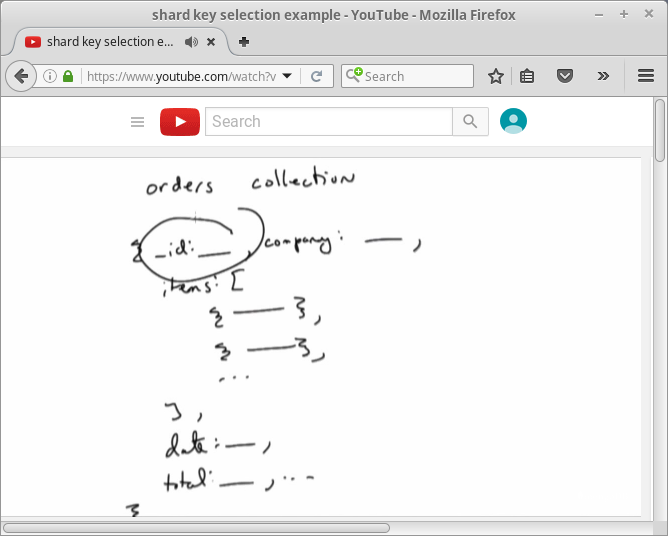 shard key selection example - YouTube - Mozilla Firefox
shard key selection e...
https://www.youtube.com/watch?v
Search
Search
orders collection
{ _id: __ , company: __ ,
items: [
{ __ },
{ __ },
...
],
date: __ ,
total: __ , ...
}